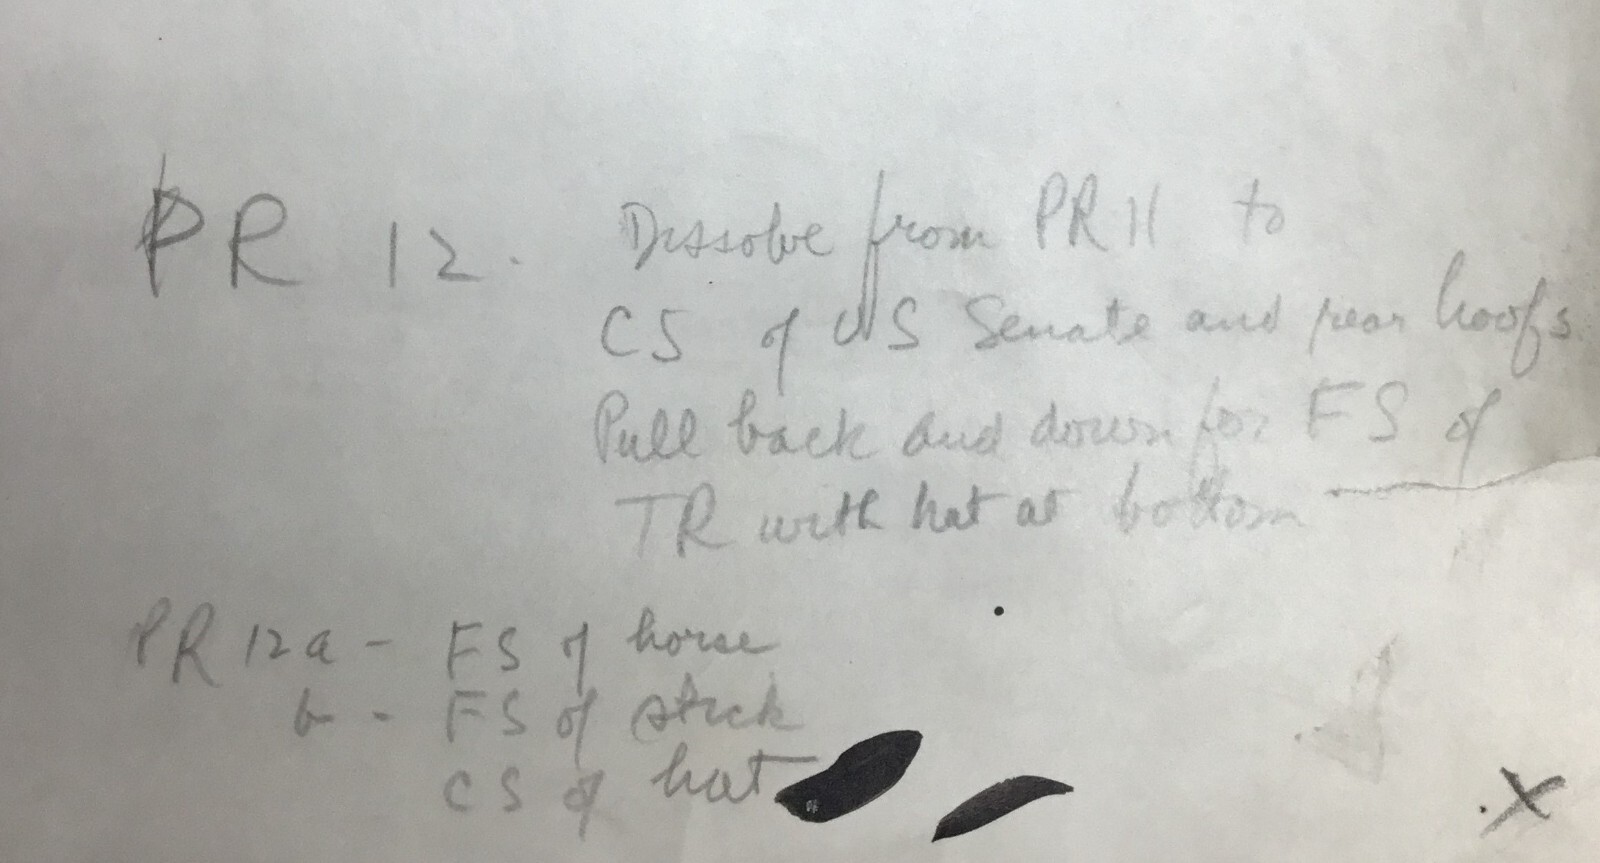 PR 12. Dissolve from PR 11 to
CS of US Senate and rear hoofs.
Pull back and down for FS of
TR with hat at bottom
PR 12a - FS of horse
b - FS of stick
CS of hat
X